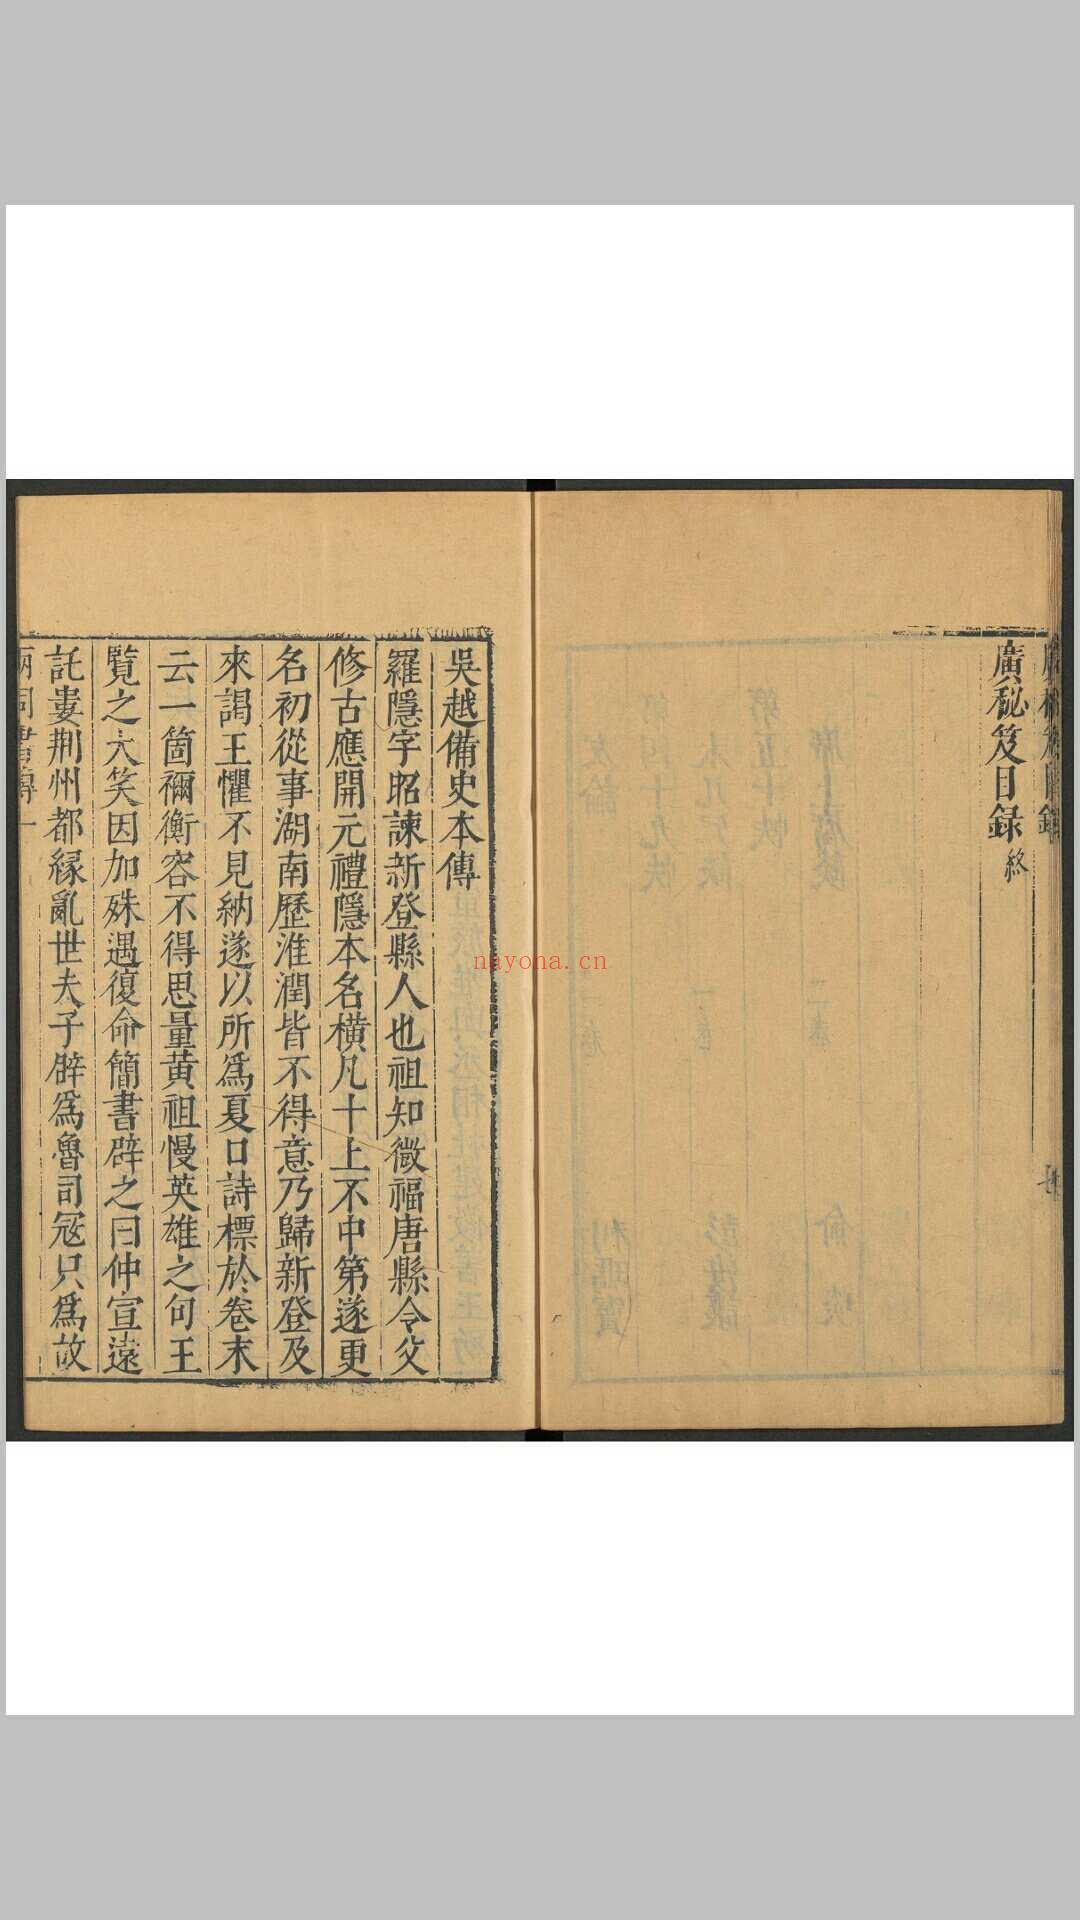 廣秘笈目録終
吳越備史本傳
羅隱字昭諫新登縣人也祖知微福唐縣令父
修古應開元禮隱本名橫凡十上不中第遂更
名初從事湖南歷淮潤皆不得意乃歸新登及
來謁王懼不見納遂以所爲夏口詩標於卷末
云一箇禰衡容不得思量黃祖慢英雄之句王
覽之大笑因加殊遇復命簡書辟之曰仲宣遠
託婁荆州都縁亂世夫子辟爲魯司冦只爲故
nayona.cn